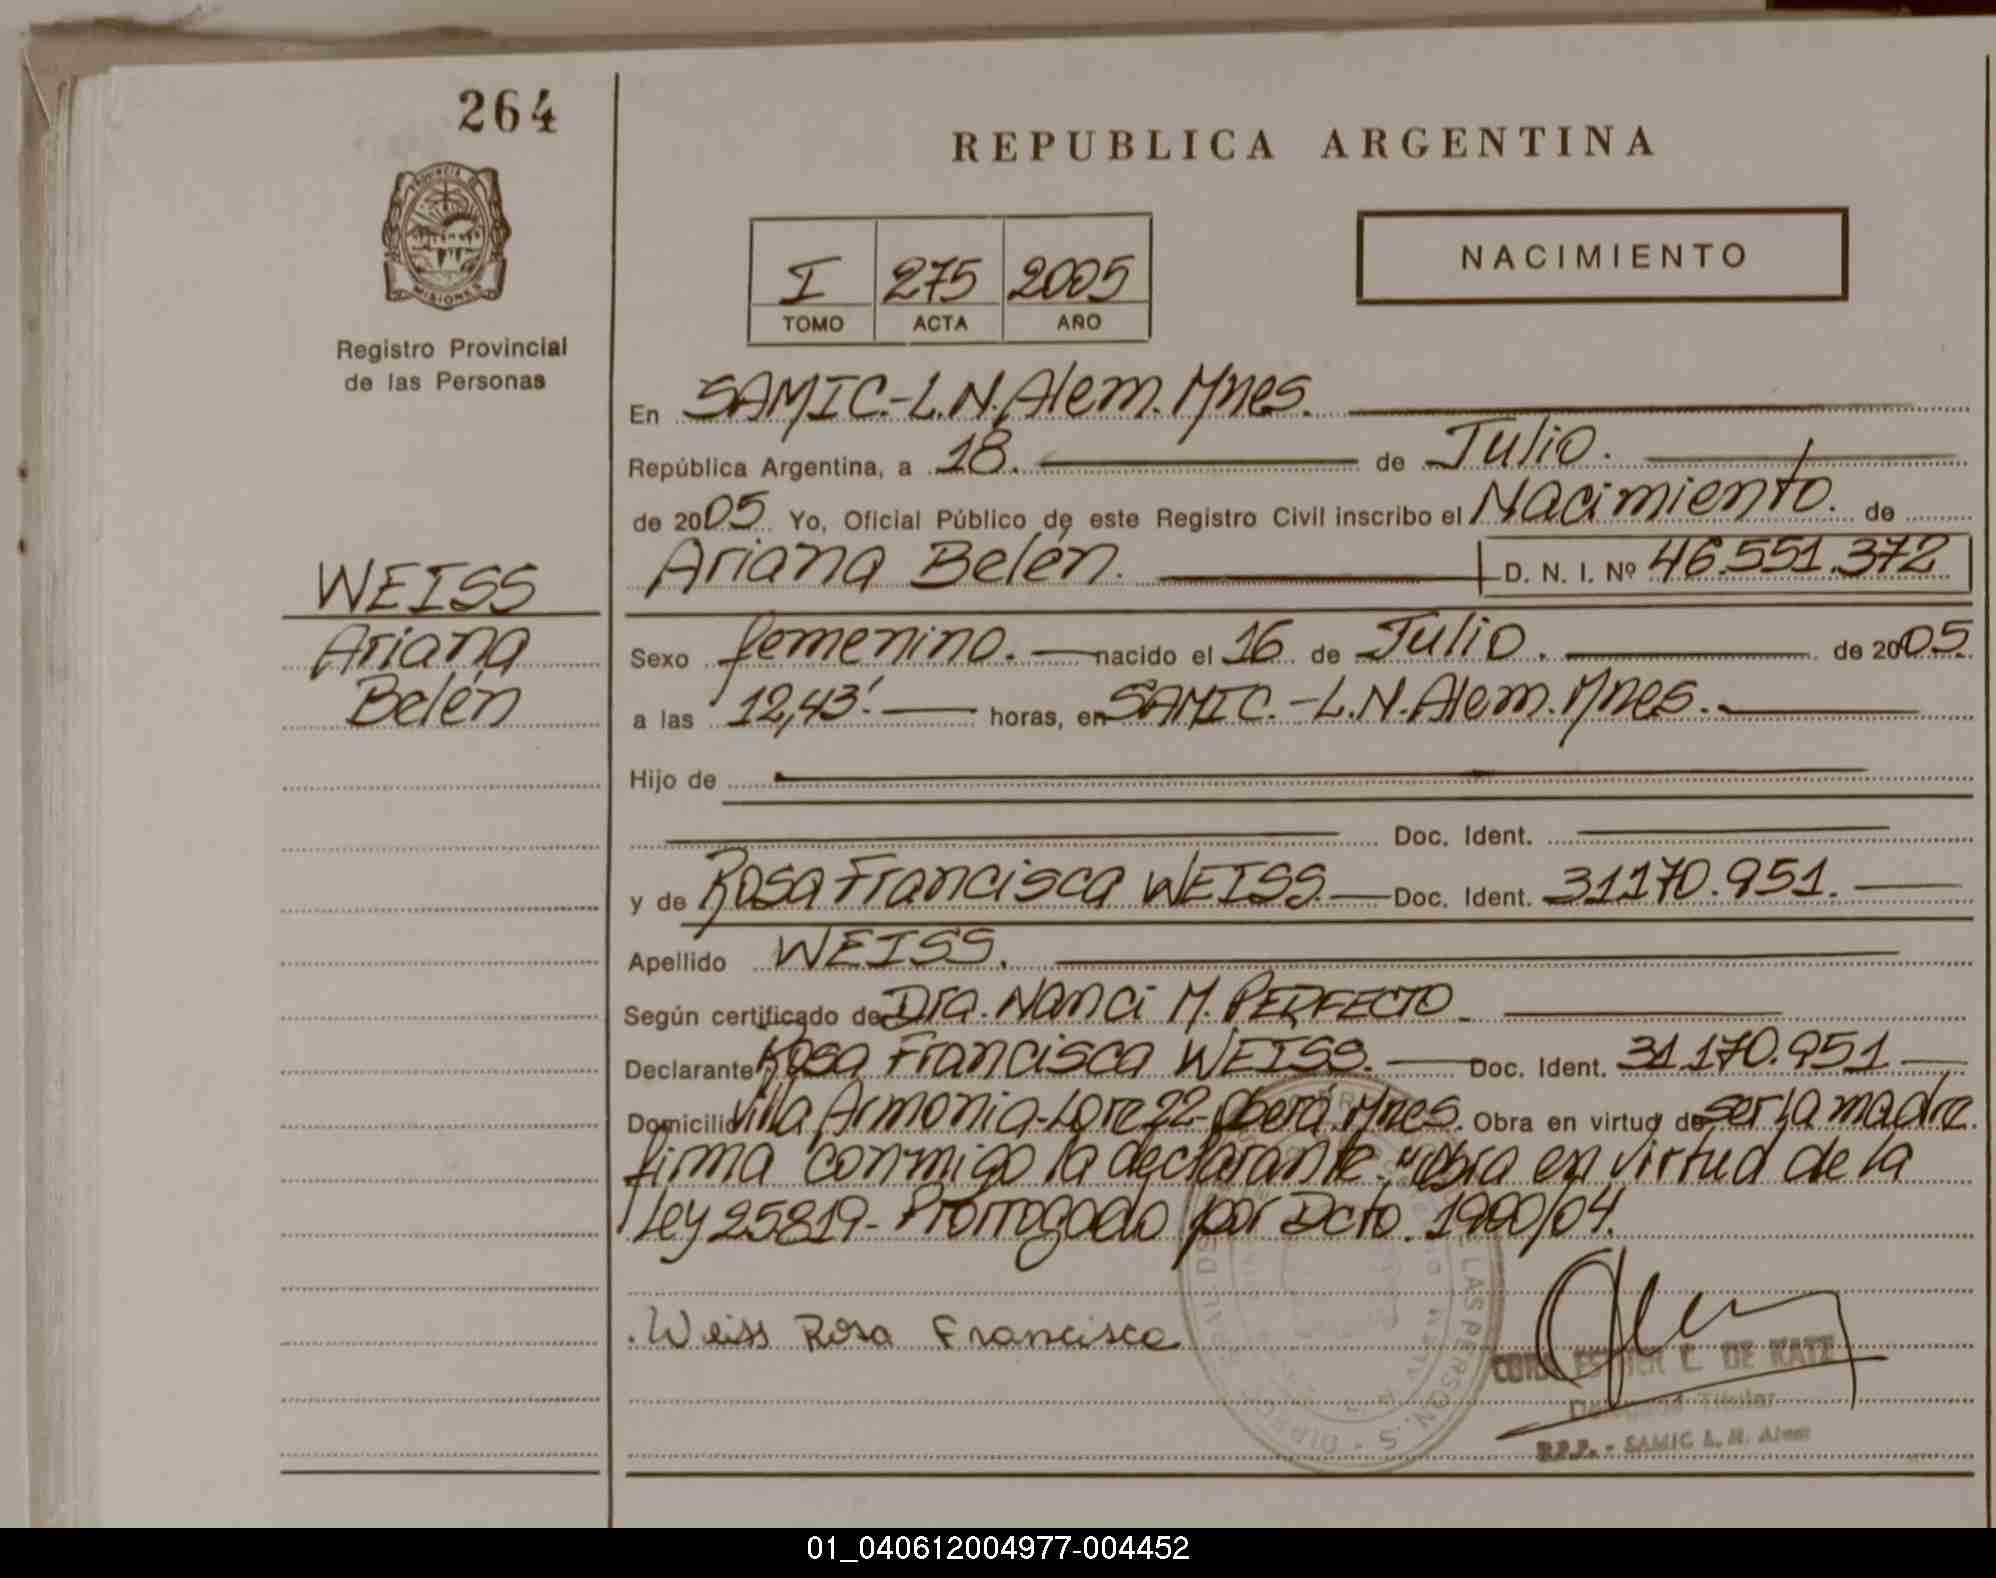 264
REPUBLICA ARGENTINA
PROVINCIA DE
MISIONES
NACIMIENTO
I 275 2005
TOMO ACTA AÑO
Registro Provincial
de las Personas
En SAMIC.-L.N.Alem.Mnes.
República Argentina, a 18. de Julio.
de 2005 Yo, Oficial Público de este Registro Civil inscribo el Nacimiento. de
Ariana Belén. D. N. I. Nº 46.551.372
WEISS
Ariana
Belén
Sexo femenino. nacido el 16 de Julio. de 2005.
a las 12,43' horas, en SAMIC.-L.N.Alem.Mnes.
Hijo de
Doc. Ident.
y de Rosa Francisca WEISS. Doc. Ident. 31.170.951.
Apellido WEISS.
Según certificado de Dra. Nanci M. PERFECTO
Declarante Rosa Francisca WEISS. Doc. Ident. 31.170.951
Domicilio Villa Armonia-Lote 22-Oberá.Mnes. Obra en virtud de ser la madre.
firma conmigo la declarante. "obra en virtud de la
Ley 25819- Prorrogado por Dcto. 1900/04.
Weiss Rosa Francisca
ESTHER C. DE KATZ
Titular
R.P.P. - SAMIC L. N. Alem
LAS PERSON S - DIREC
01_040612004977-004452